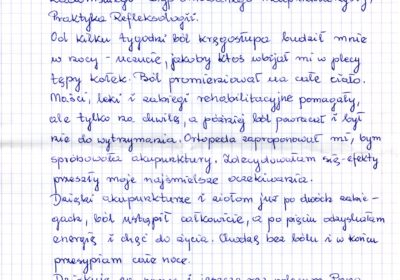 Praktyka Refleksologii.
Od kilku tygodni ból kręgosłupa budził mnie
w nocy - uczucie, jakoby ktoś wbijał mi w plecy
tępy kołek. Ból promieniował na całe ciało.
Maści, leki i zabiegi rehabilitacyjne pomagały,
ale tylko na chwilę, a później ból powracał i był
nie do wytrzymania. Ortopeda zaproponował mi, bym
spróbowała akupunktury. Zdecydowałam się - efekty
przeszły moje najśmielsze oczekiwania.
Dzięki akupunkturze i ziołom już po dwóch zabie-
gach, ból ustąpił całkowicie, a po pięciu odzyskałam
energię i chęć do życia. Chodzę bez bólu i w końcu
przesypiam całe noce.